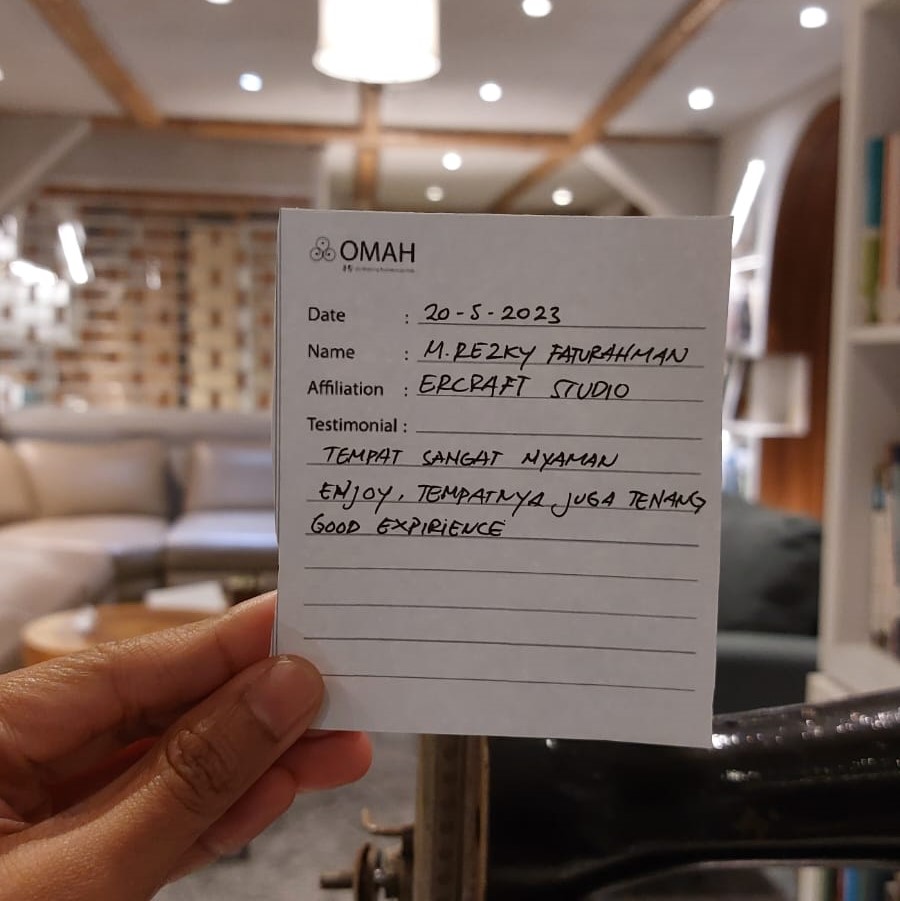 OMAH
Date : 20-5-2023
Name : M.REZKY FATURAHMAN
Affiliation : ERCRAFT STUDIO
Testimonial :
TEMPAT SANGAT NYAMAN
ENJOY, TEMPATNYA JUGA TENANG
GOOD EXPIRIENCE